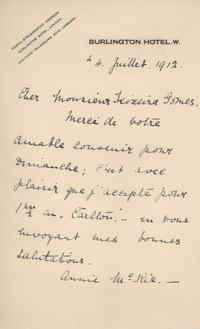 BURLINGTON HOTEL. W.
4 Juillet. 1912.
Cher Monsieur Teixeira Gomes.
Merci de votre
aimable souvenir pour
Dimanche; c'est avec
plaisir que j'accepte pour
au "Carlton" - en vous
envoyant mes bonnes
salutations.
Annie McKie. —